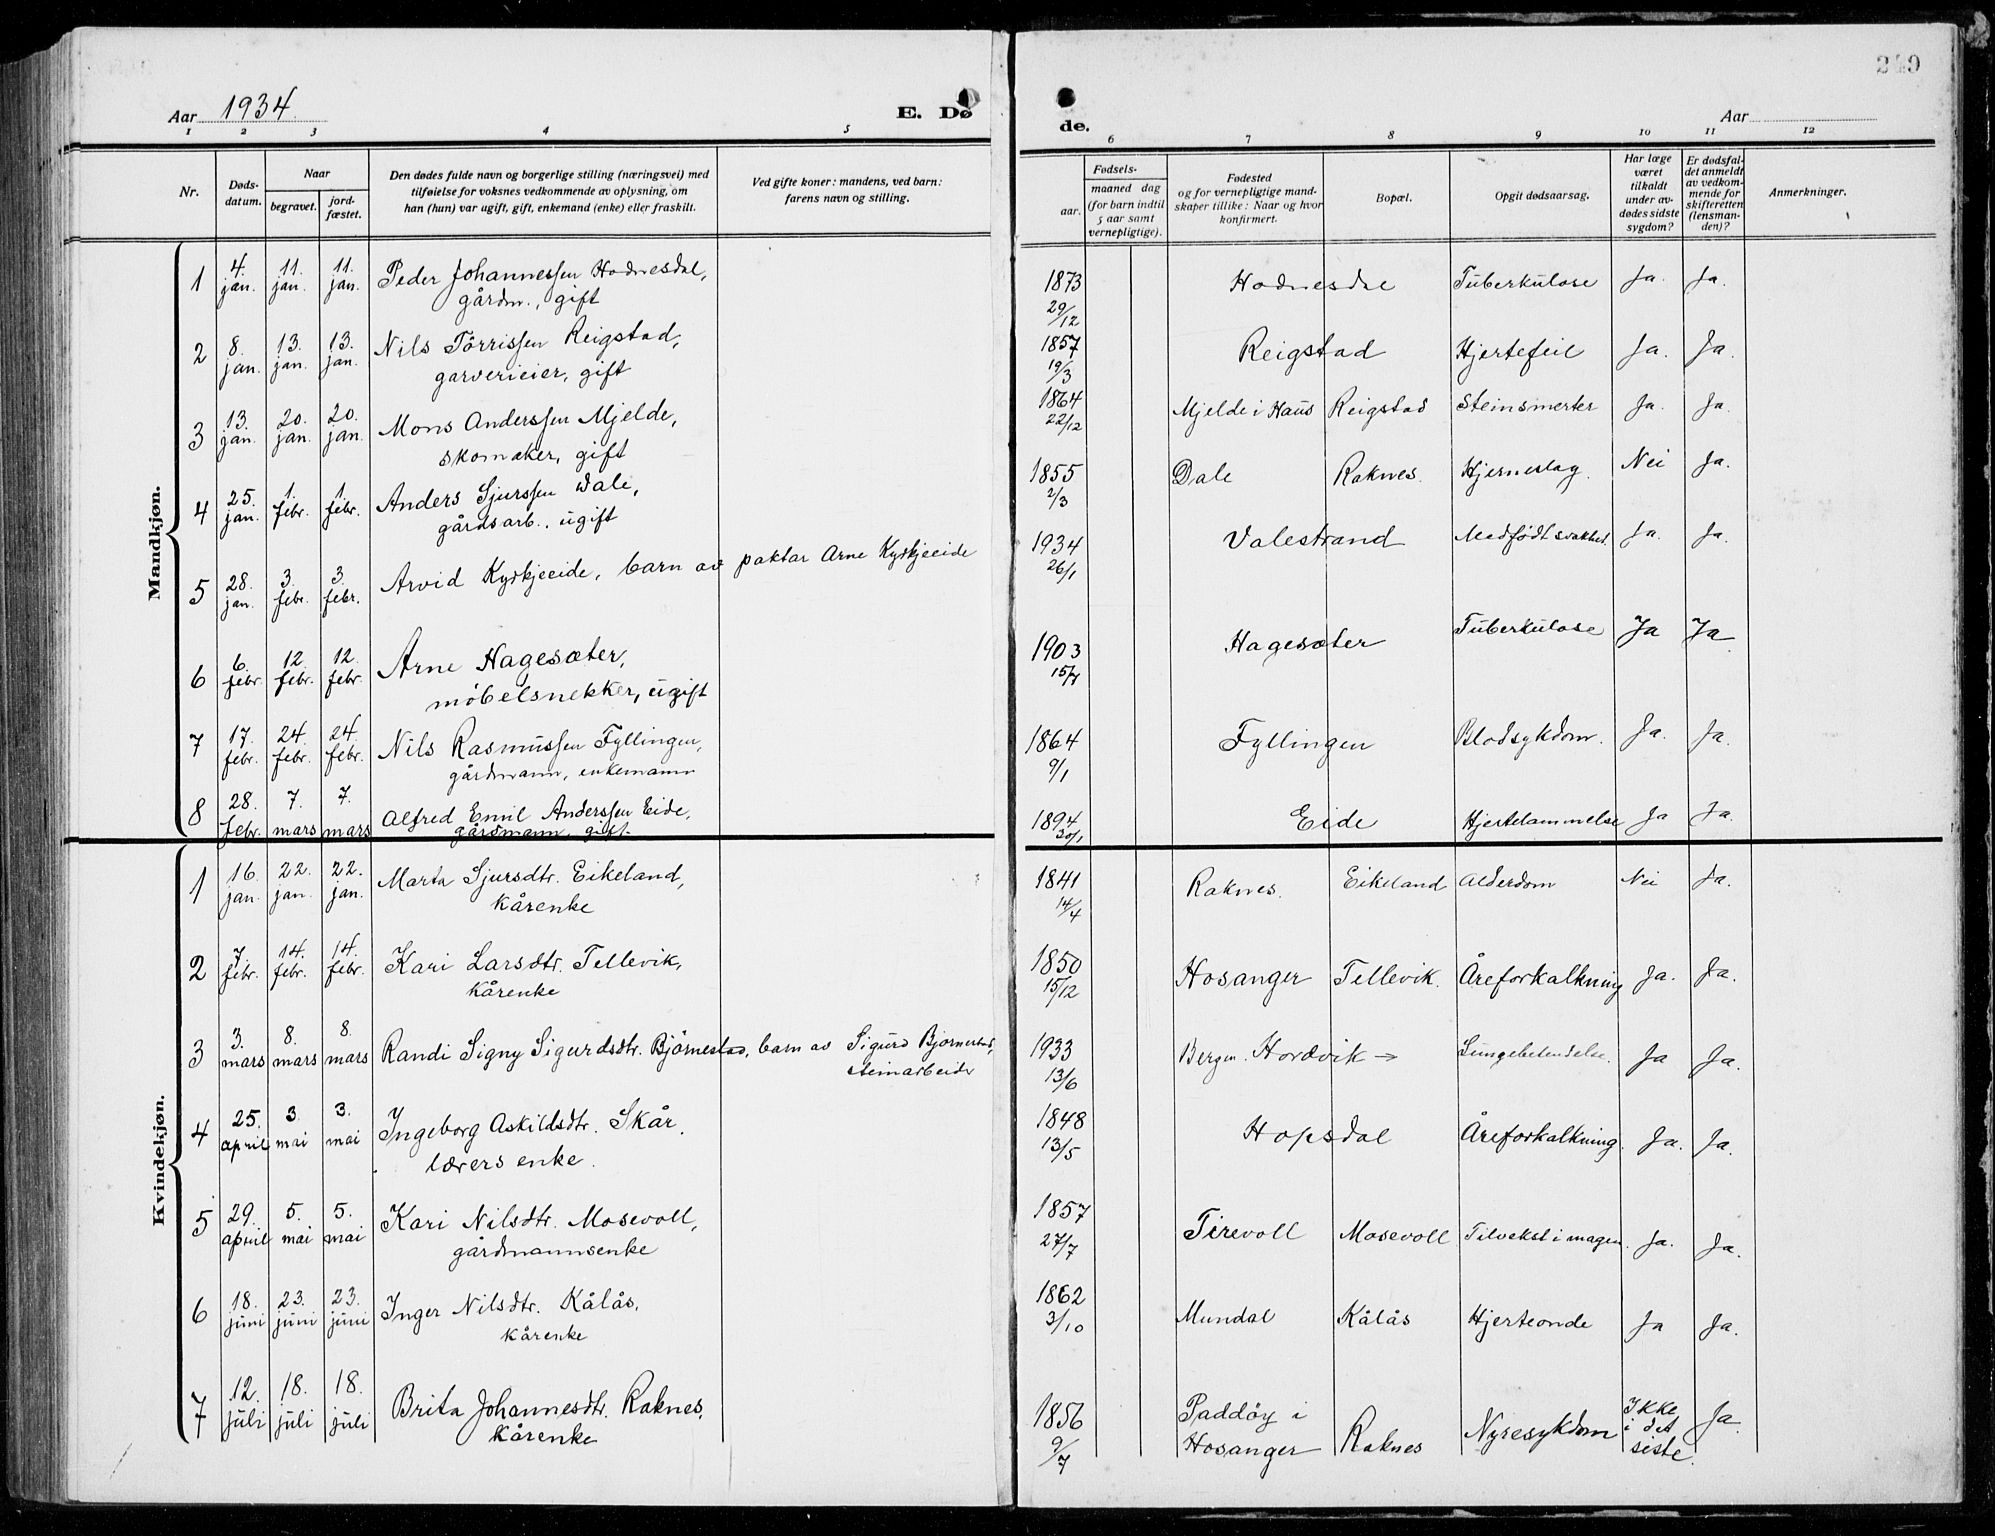 249
Aar 1934. E. Dø de. Aar
1 2 3 4 5 6 7 8 9 10 11 12
Nr.
Døds-
datum.
Naar
begravet.
jord-
fæstet.
Den dødes fulde navn og borgerlige stilling (næringsvei) med
tilføielse for voksnes vedkommende av oplysning, om
han (hun) var ugift, gift, enkemand (enke) eller fraskilt.
Ved gifte koner: mandens, ved barn:
farens navn og stilling.
Fødsels-
aar.
maaned dag
(for barn indtil
5 aar samt
vernepligtige).
Fødested
og for vernepligtige mand-
skaper tillike: Naar og hvor
konfirmert.
Bopæl.
Opgit dødsaarsag.
Har læge
været
tilkaldt
under av-
dødes sidste
sygdom?
Er dødsfal-
det anmeldt
av vedkom-
mende for
skifteretten
(lensman-
den)?
Anmerkninger.
Mandkjøn.
1 4. jan. 11. jan. 11. jan. Peder Johannessen Hodnesdal, 1873 Hodnesdal Tuberkulose Ja. Ja.
gårdm., gift 29/12
2 8. jan. 13. jan. 13. jan. Nils Törrissen Reigstad, 1857 Reigstad Hjertefeil Ja. Ja.
garverieier, gift 19/3
3 13. jan. 20. jan. 20. jan. Mons Anderssen Mjelde, 1864 Mjelde i Haus Reigstad Steinsmerter Ja. Ja.
skomaker, gift 22/12
4 25. jan. 1. febr. 1. febr. Anders Sjurssen Dale, 1855 Dale Raknes. Hjerneslag. Nei Ja.
gårdsarb., ugift 2/3
5 28. jan. 3. febr. 3. febr. Arvid Kyrkjeeide, barn av paktar Arne Kyrkjeeide 1934 Valestrand Medfødt svakhet. Ja. Ja.
26/1
6 6. febr. 12. febr. 12. febr. Arne Hagesæter, 1903 Hagesæter Tuberkulose Ja Ja
möbelsnekker, ugift
7 17. febr. 24. febr. 24. febr. Nils Rasmussen Fyllingen, 1864 Fyllingen Blodsykdom. Ja. Ja.
gårdmann, enkemann 9/1
8 28. febr. 7. mars 7. mars Alfred Emil Anderssen Eide, 1894 Eide Hjertelammelse Ja Ja.
gårdmann, gift. 30/1
Kvindekjøn.
1 16. jan. 22. jan. 22. jan. Marta Sjursdtr. Eikeland, 1841 Raknes. Eikeland Alderdom Nei Ja.
Kårenke 14/4
2 7. febr. 14. febr. 14. febr. Kari Larsdtr. Tellevik, 1850 Hosanger Tellevik. Åreforkalkning Ja. Ja.
Kårenke 15/12
3 3. mars 8. mars 8. mars Randi Signy Sigurdsdtr. Björnestad, barn av Sigurd Björnestad, 1933 Bergen. Hordvik → Lungebetendelse. Ja Ja.
steinarbeider 13/6
4 25. april 3. mai 3. mai Ingeborg Askildsdtr. Skår. 1848 Hopsdal Åreforkalkning. Ja. Ja.
lærers enke. 13/5
5 29. april 5. mai 5. mai Kari Nilsdtr. Mosevoll, 1857 Tirevoll Mosevoll Tilvekst i magen. Ja. Ja.
gårdmannsenke 27/7
6 18. juni 23. juni 23. juni Inger Nilsdtr. Kålås, 1862 Mundal Kålås Hjerteonde Ja Ja.
Kårenke 3/10
7 12. juli 18. juli 18. juli Brita Johannesdtr. Raknes, 1856 Paddöy i Hosanger Raknes Nyresykdom Ikke i det siste. Ja
Kårenke 9/7